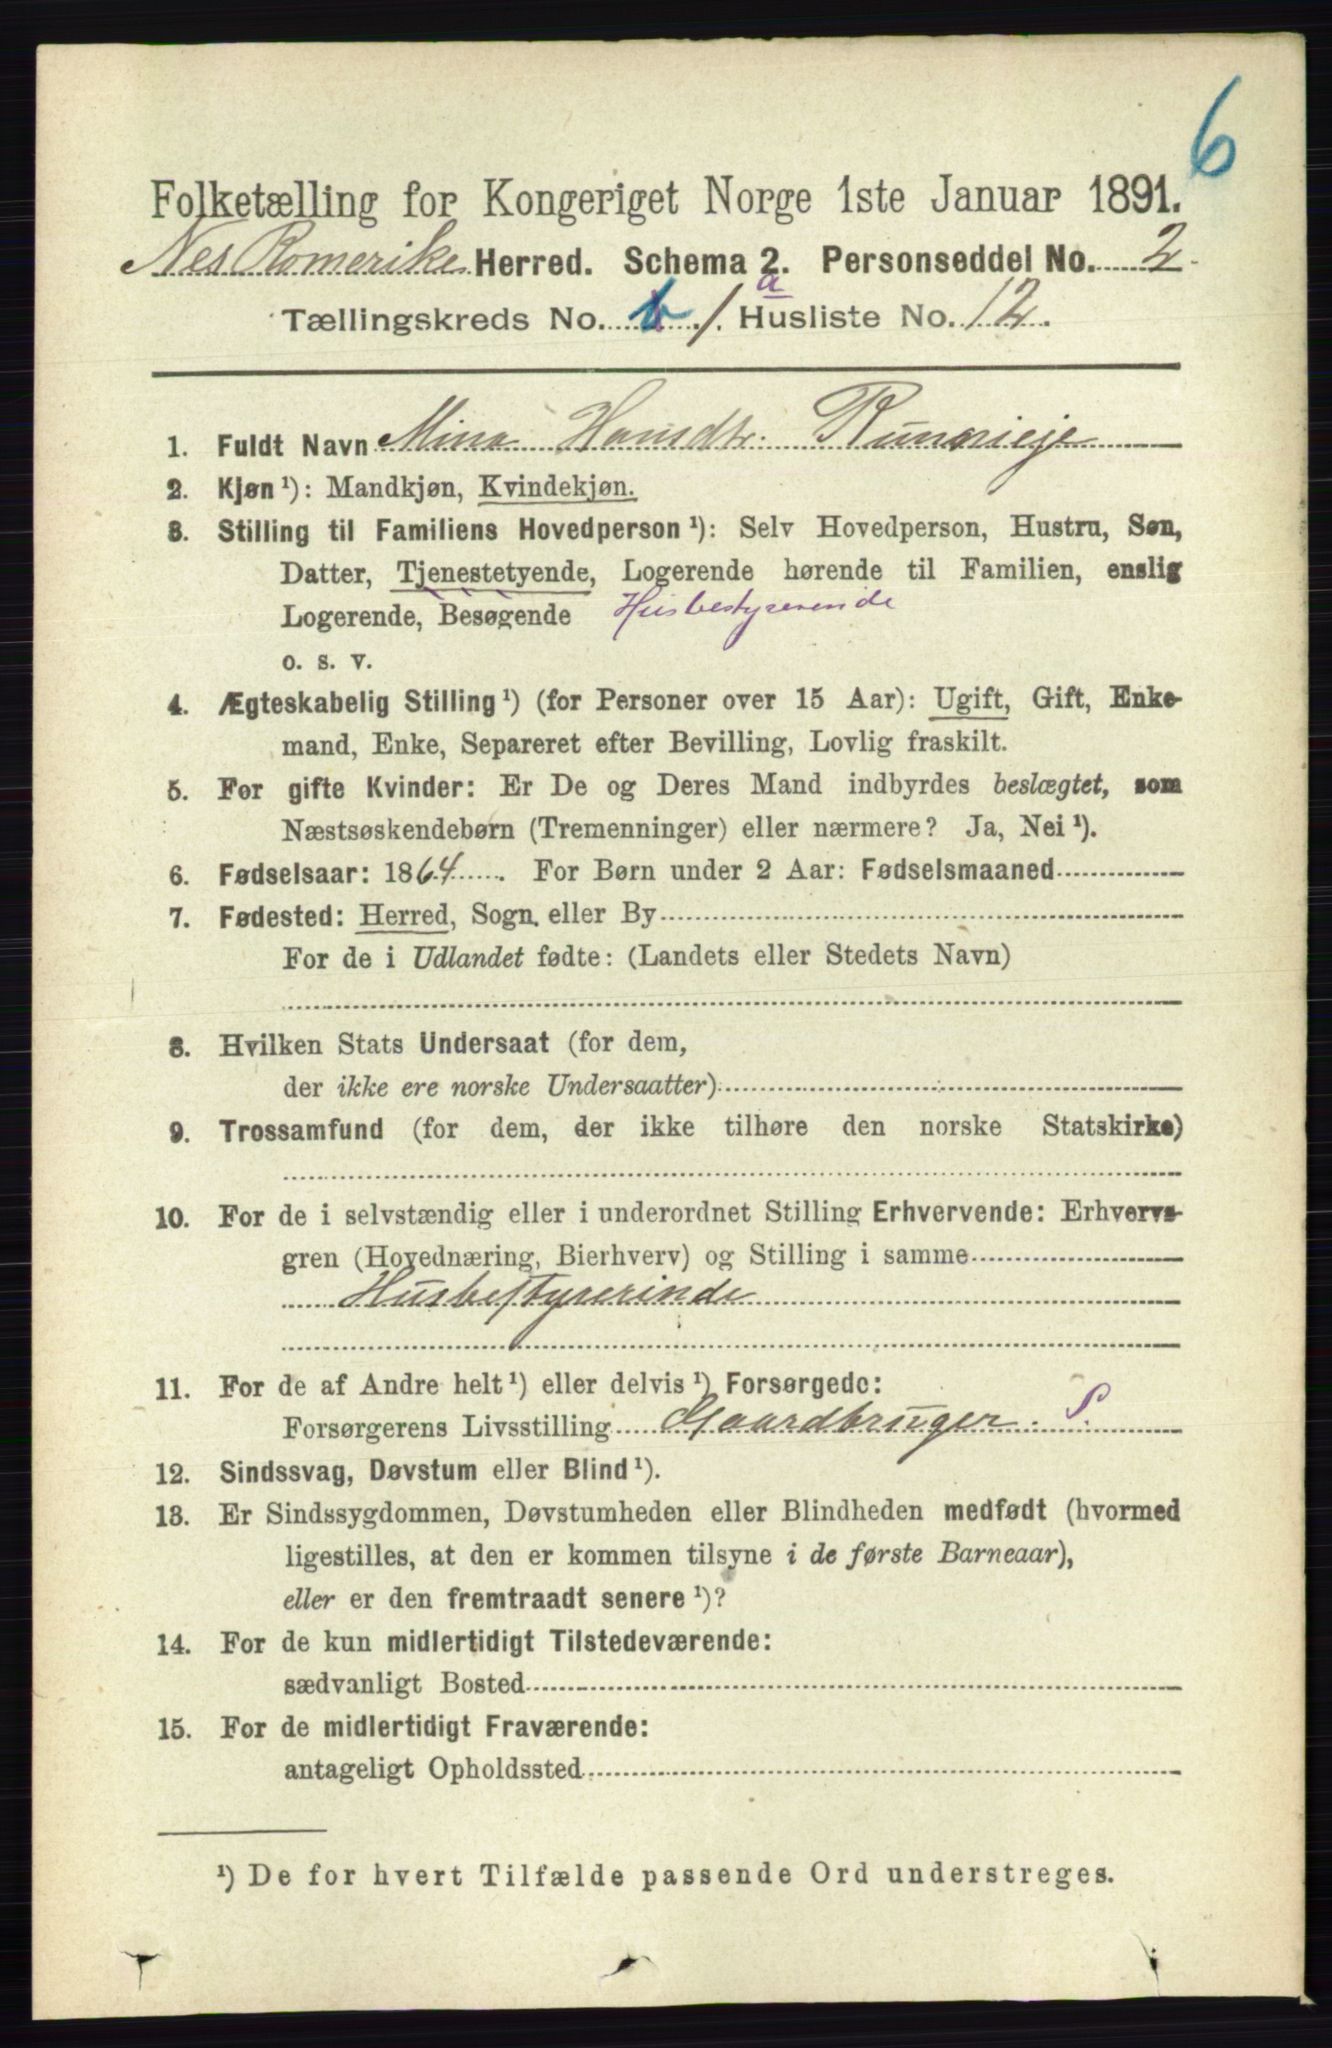 6
Folketælling for Kongeriget Norge 1ste Januar 1891.
Nes Romerike Herred. Schema 2. Personseddel No. 2.
a
Tællingskreds No. b./. Husliste No. 12.
1. Fuldt Navn Mina Hansdtr.
2. Kjøn ¹): Mandkjøn, Kvindekjøn.
3. Stilling til Familiens Hovedperson ¹): Selv Hovedperson, Hustru, Søn,
Datter, Tjenestetyende, Logerende hørende til Familien, enslig
Logerende, Besøgende Husbestyrerende
o. s. v.
4. Ægteskabelig Stilling ¹) (for Personer over 15 Aar): Ugift, Gift, Enke-
mand, Enke, Separeret efter Bevilling, Lovlig fraskilt.
5. For gifte Kvinder: Er De og Deres Mand indbyrdes beslægtet, som
Næstsøskendebørn (Tremenninger) eller nærmere? Ja, Nei ¹).
6. Fødselsaar: 1864. For Børn under 2 Aar: Fødselsmaaned
7. Fødested: Herred, Sogn, eller By
For de i Udlandet fødte: (Landets eller Stedets Navn)
8. Hvilken Stats Undersaat (for dem,
der ikke ere norske Undersaatter)
9. Trossamfund (for dem, der ikke tilhøre den norske Statskirke)
10. For de i selvstændig eller i underordnet Stilling Erhvervende: Erhvervs-
gren (Hovednæring, Bierhverv) og Stilling i samme
Husbestyrerinde
11. For de af Andre helt ¹) eller delvis ¹) Forsørgede:
Forsørgerens Livsstilling Gaardbruger. S.
12. Sindssvag, Døvstum eller Blind ¹).
13. Er Sindssygdommen, Døvstumheden eller Blindheden medfødt (hvormed
ligestilles, at den er kommen tilsyne i de første Barneaar),
eller er den fremtraadt senere ¹)?
14. For de kun midlertidigt Tilstedeværende:
sædvanligt Bosted
15. For de midlertidigt Fraværende:
antageligt Opholdssted
¹) De for hvert Tilfælde passende Ord understreges.